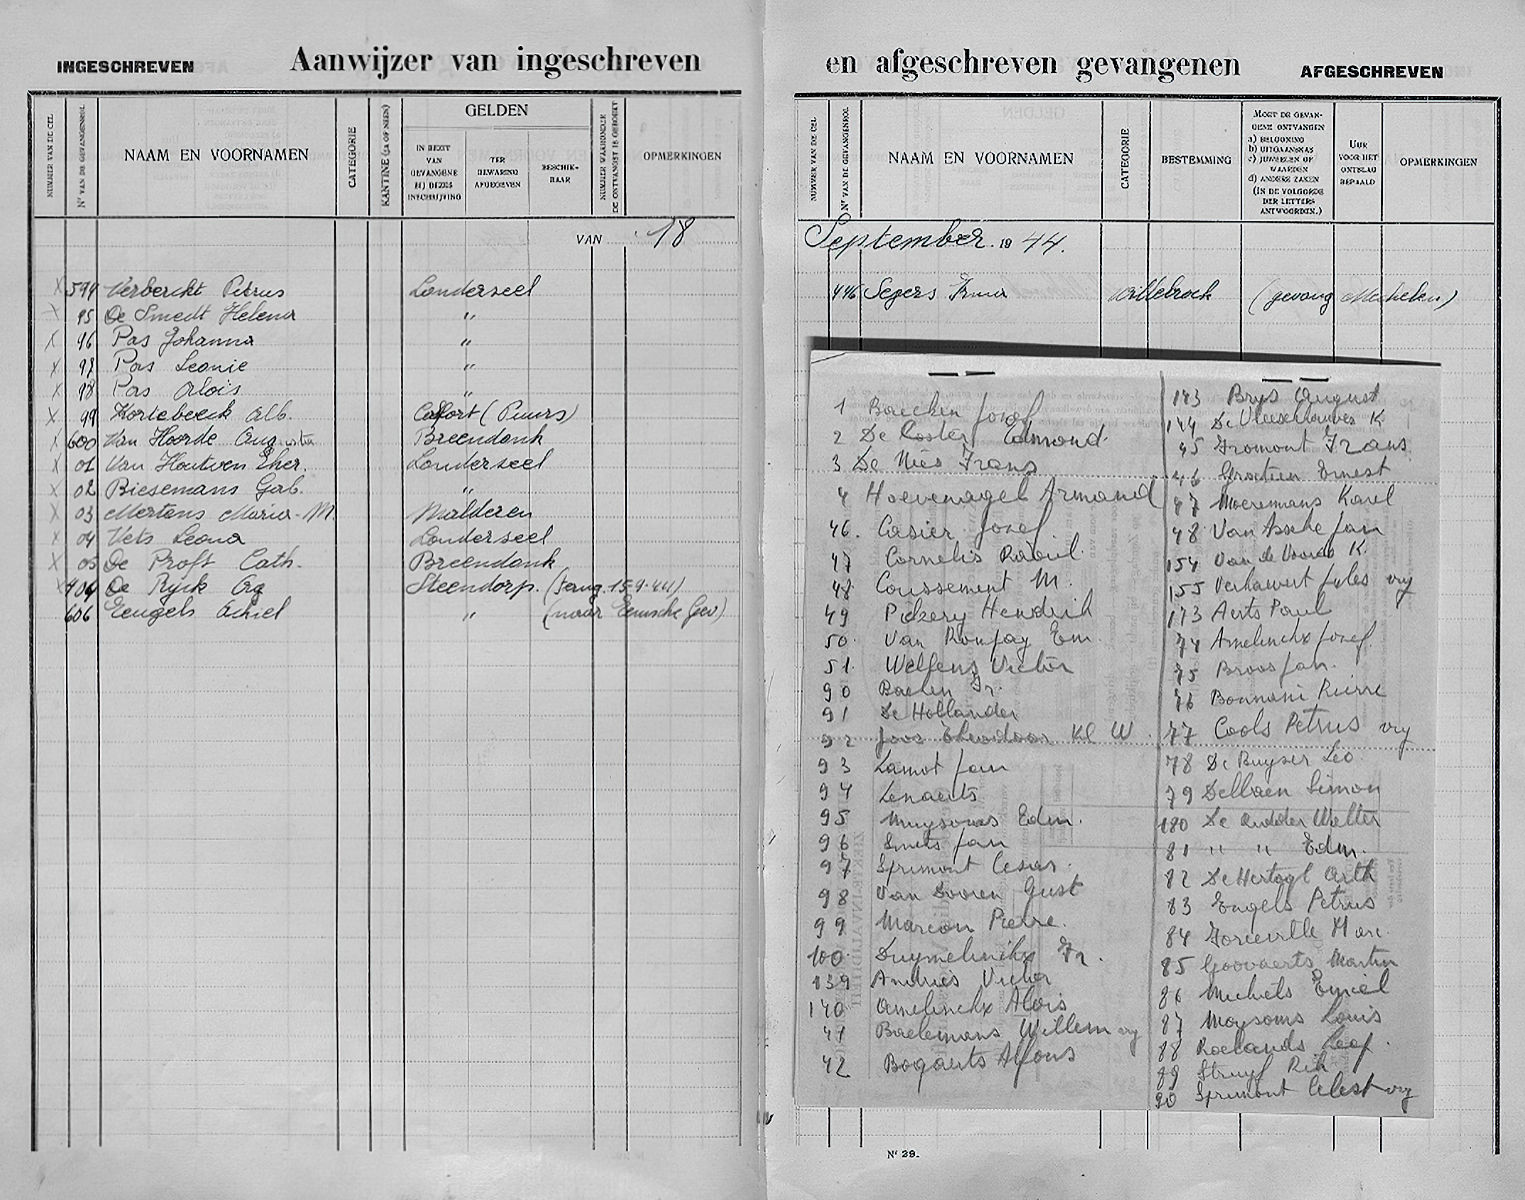 INGESCHREVEN
Aanwijzer van ingeschreven
en afgeschreven gevangenen
AFGESCHREVEN
NUMMER VAN DE CEL
Nr VAN DE GEVANGENROL
NAAM EN VOORNAMEN
CATEGORIE
KANTINE (JA OF NEEN)
GELDEN
IN BEZIT
VAN
GEVANGENE
BIJ DEZES
INSCHRIJVING
TER
BEWARING
AFGEGEVEN
BESCHIK-
BAAR
NUMMER WAARONDER
DE ONTVANGST IS GEBOEKT
OPMERKINGEN
VAN 18
X 594 Verberckt Petrus Londerseel
X 95 De Smedt Helena "
X 96 Pas Johanna "
X 97 Pas Leonie "
X 98 Pas Alois "
X 99 Kortebeeck Alb. Calfort (Puurs)
X 600 Van Hoorde Breendonk
X 01 Van Houtven Londerseel
X 02 Biesemans Gab. "
X 03 Mertens Maria-M. Malderen
X 04 Vets Leona Londerseel
X 05 De Proft Cath. Breendonk
X 404 De Rijck Steendorp. (terug 15-9-44)
606 Eeugels Achiel " (naar Gev)
NUMMER VAN DE CEL
Nr VAN DE GEVANGENROL
NAAM EN VOORNAMEN
CATEGORIE
BESTEMMING
MOET DE GEVAN-
GENE ONTVANGEN
a) BELOONING
b) UITGAANSKAS
c) JUWEELEN OF
WAARDEN
d) ANDERE ZAKEN
(IN DE VOLGORDE
DER LETTERS
ANTWOORDEN.)
UUR
VOOR HET
ONTSLAG
BEPAALD
OPMERKINGEN
September 19 44.
446 Segers Irma Willebroek (gevang Mechelen)
1 Baecken Jozef
2 De Coster Edmond
3 De Nies Frans
4 Hoevenagel Armand
46. Casier Jozef
47 Cornelis Raoul
48 Coussement M.
49 Pickery Hendrik
50. Van Em.
51. Welfens Victor
90 Baelen Fr.
91 De Hollander
92 Joos Theodoor Kl W
93 Lamot Jan
94 Lenaerts
95 Muysoms Edm.
96 Smets Jan
97 Sprimont Cesar.
98 Van Dooren Gust
99 Marcon Pierre.
100. Duymelinckx Fr.
139 Andries Victor
140 Amelinckx Alois
41 Baelemans Willem vry
42 Bogaerts Alfons
143 Brys August
144 De Vleeschauwer K
45 Fromont Frans
46 Ernest
47 Moeremans Karel
48 Van Assche Jan
154 K.
155 Verhavert Jules vry
173 Aerts Paul
74 Amelinckx Jozef
75 Broos Jan.
76 Bonnani Pierre
77 Cools Petrus vry
78 De Buyser Leo
79 Dellaen Simon
180 De Ridder Walter
81 " " Edm.
82 De Hertogt Arth
83 Engels Petrus
84 Marc.
85 Goovaerts Martin
86 Michiels Emiel
87 Moysoms Louis
88 Roelands Leop.
89 Struyf Rik
90 Sprimont Celest vry
Nr 29.